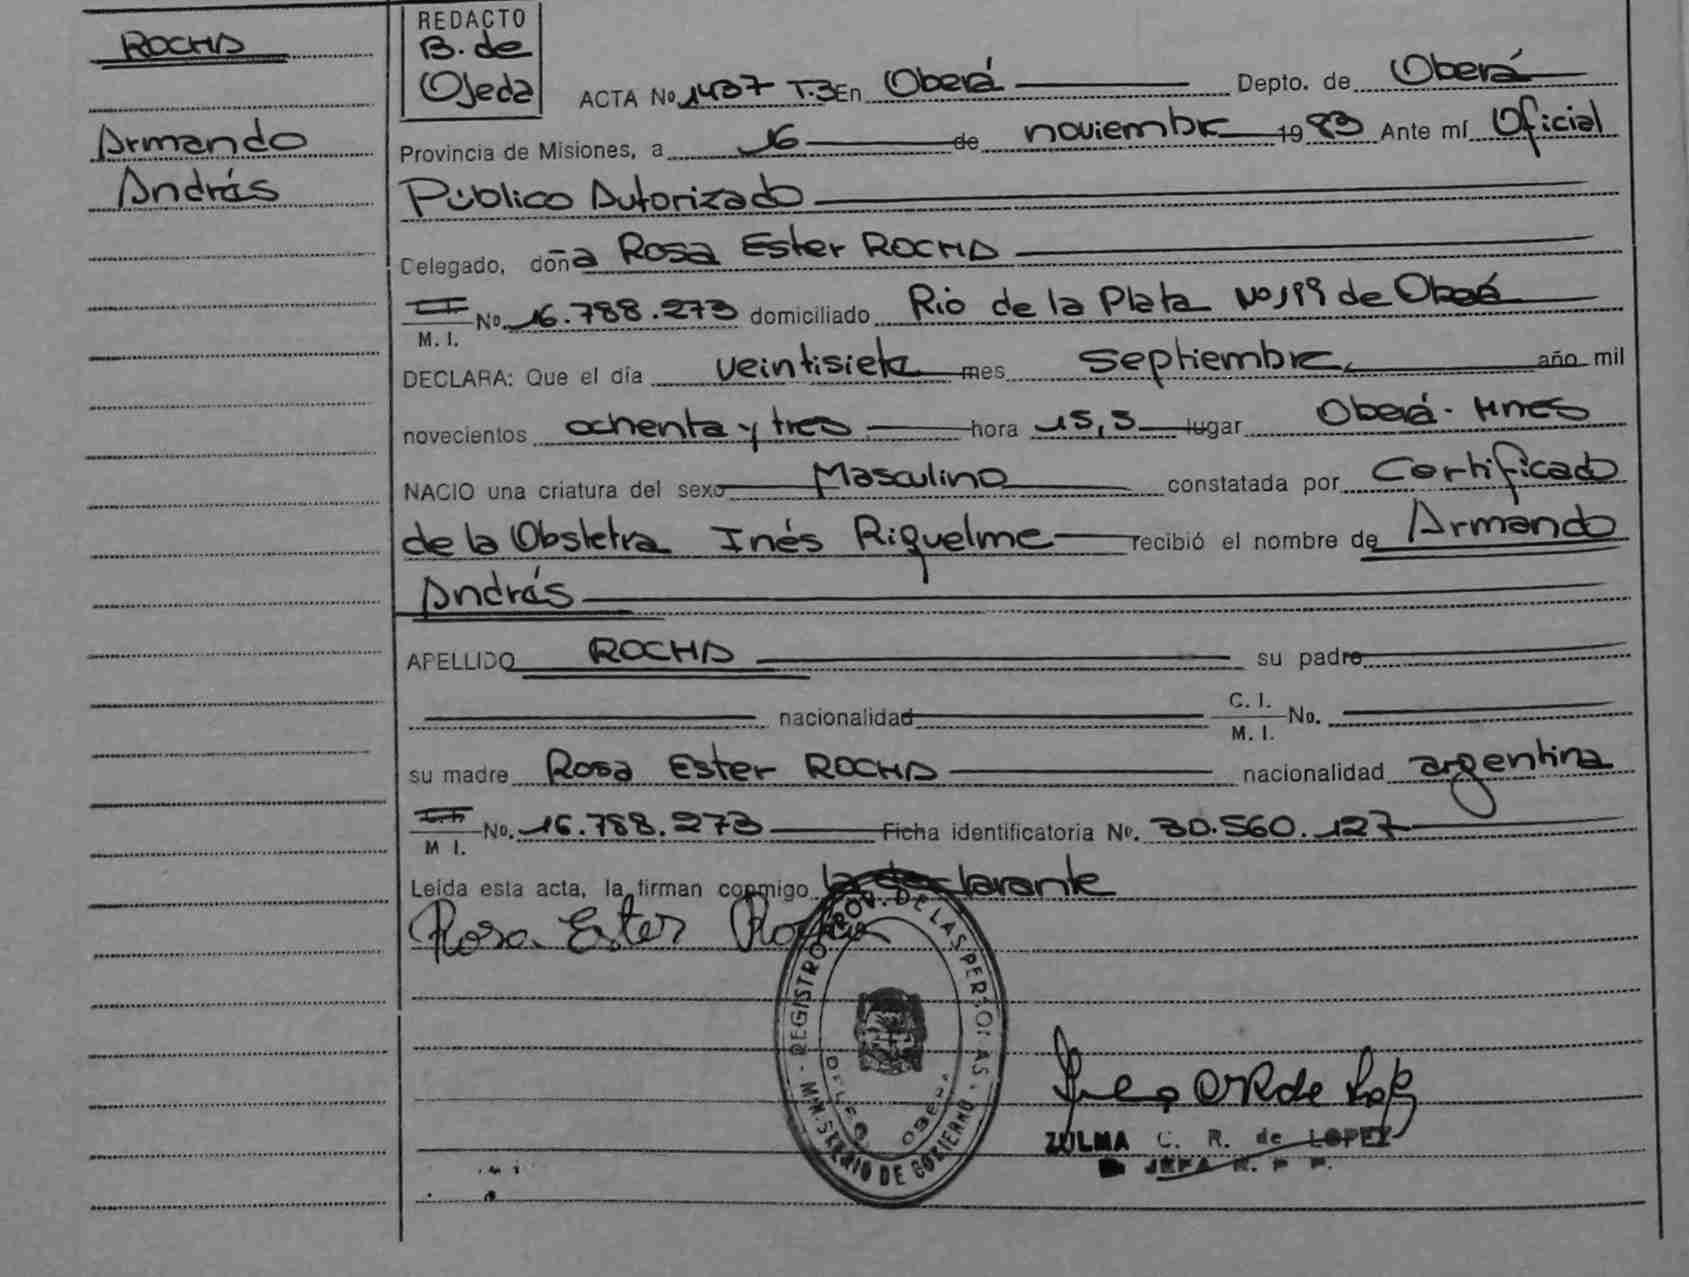 ROCHA
Armando
András
REDACTO
B. de
Ojeda
ACTA No 1437 T.3 En Oberá Depto. de Oberá
Provincia de Misiones, a 16 de noviembre 1983 Ante mí Oficial
Público Autorizado
Delegado, doña Rosa Ester ROCHA
M. I. No. 16.788.273 domiciliado Rio de la Plata No 199 de Oberá
DECLARA: Que el día veintisiete mes septiembre año mil
novecientos ochenta y tres hora 15,5 lugar Oberá - Mnes
NACIO una criatura del sexo Masculino constatada por Certificado
de la Obstetra Inés Riquelme recibió el nombre de Armando
András
APELLIDO ROCHA su padre
nacionalidad C. I. M. I. No.
su madre Rosa Ester ROCHA nacionalidad argentina
M I. No. 16.788.273 Ficha identificatoria No. 30.560.127
Leída esta acta, la firman conmigo la declarante
Rosa Ester Rocha
REGISTRO PROV. DE LAS PERSONAS - MINISTERIO DE GOBIERNO
DELEG. OBERA
ZULMA C. R. de LOPEZ
JEFA R. P. P.